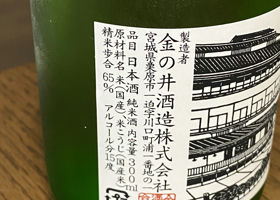 製造者
金の井酒造株式会社
宮城県栗原市一迫字川口町浦一番地の一
品目 日本酒 純米酒 内容量 300ml
原材料名 米(国産)、米こうじ(国産米)
精米歩合 65% アルコール分15度